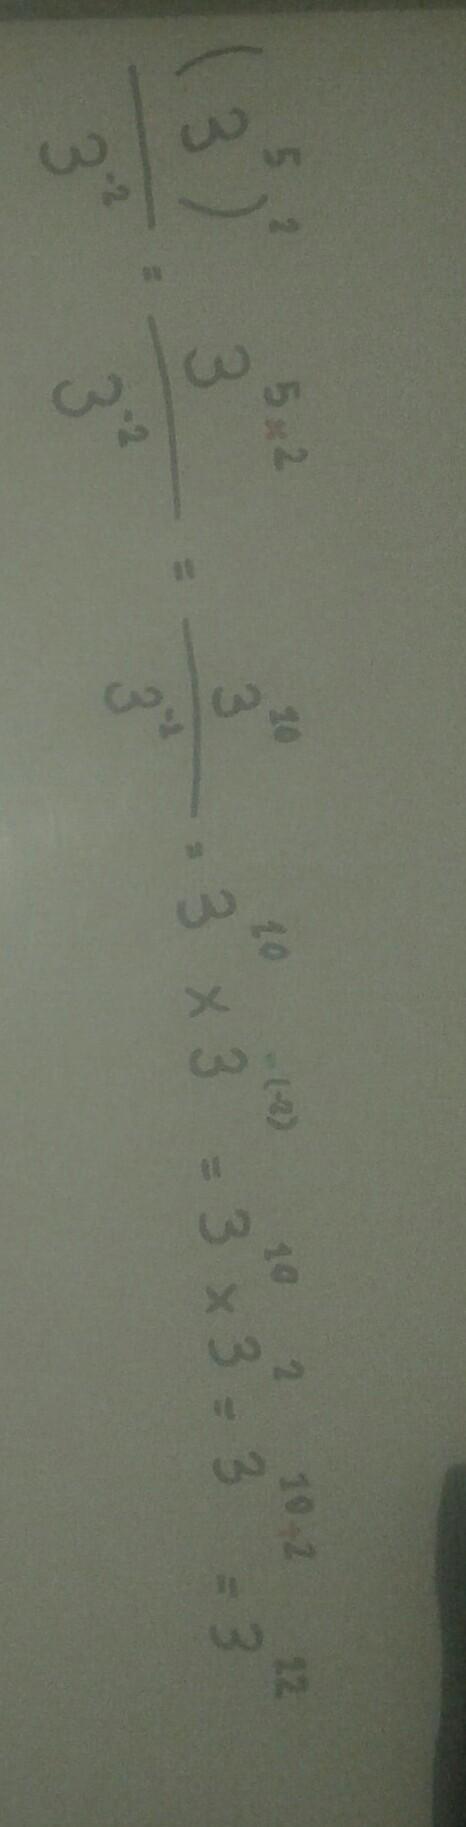 (3⁵)²/3⁻² = 3⁵ˣ²/3⁻² = 3¹⁰/3⁻² = 3¹⁰ × 3⁻⁽⁻²⁾ = 3¹⁰ × 3² = 3¹⁰⁺² = 3¹²